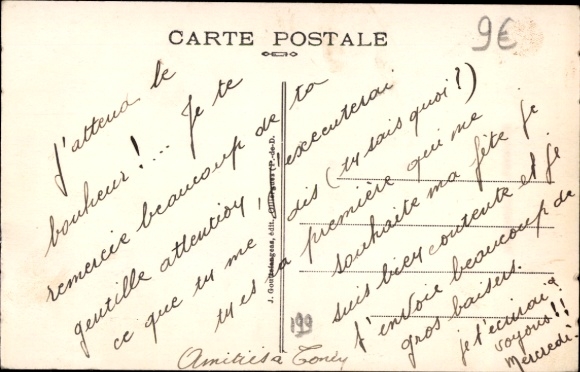 CARTE POSTALE
9€
J'attend le
bonheur!.... Je te
remercie beaucoup de ta
gentille attention, j'executerai
ce que tu me dis (tu sais quoi?)
tu es la première qui me
souhaite ma fête je
suis bien contente et je
t'envoie beaucoup de
gros baisers.
je t'ecrirai
voyons!!
Mercredi.
Amitiés à Toney
199
J. Goutelangeas, édit. (P.-de-D.